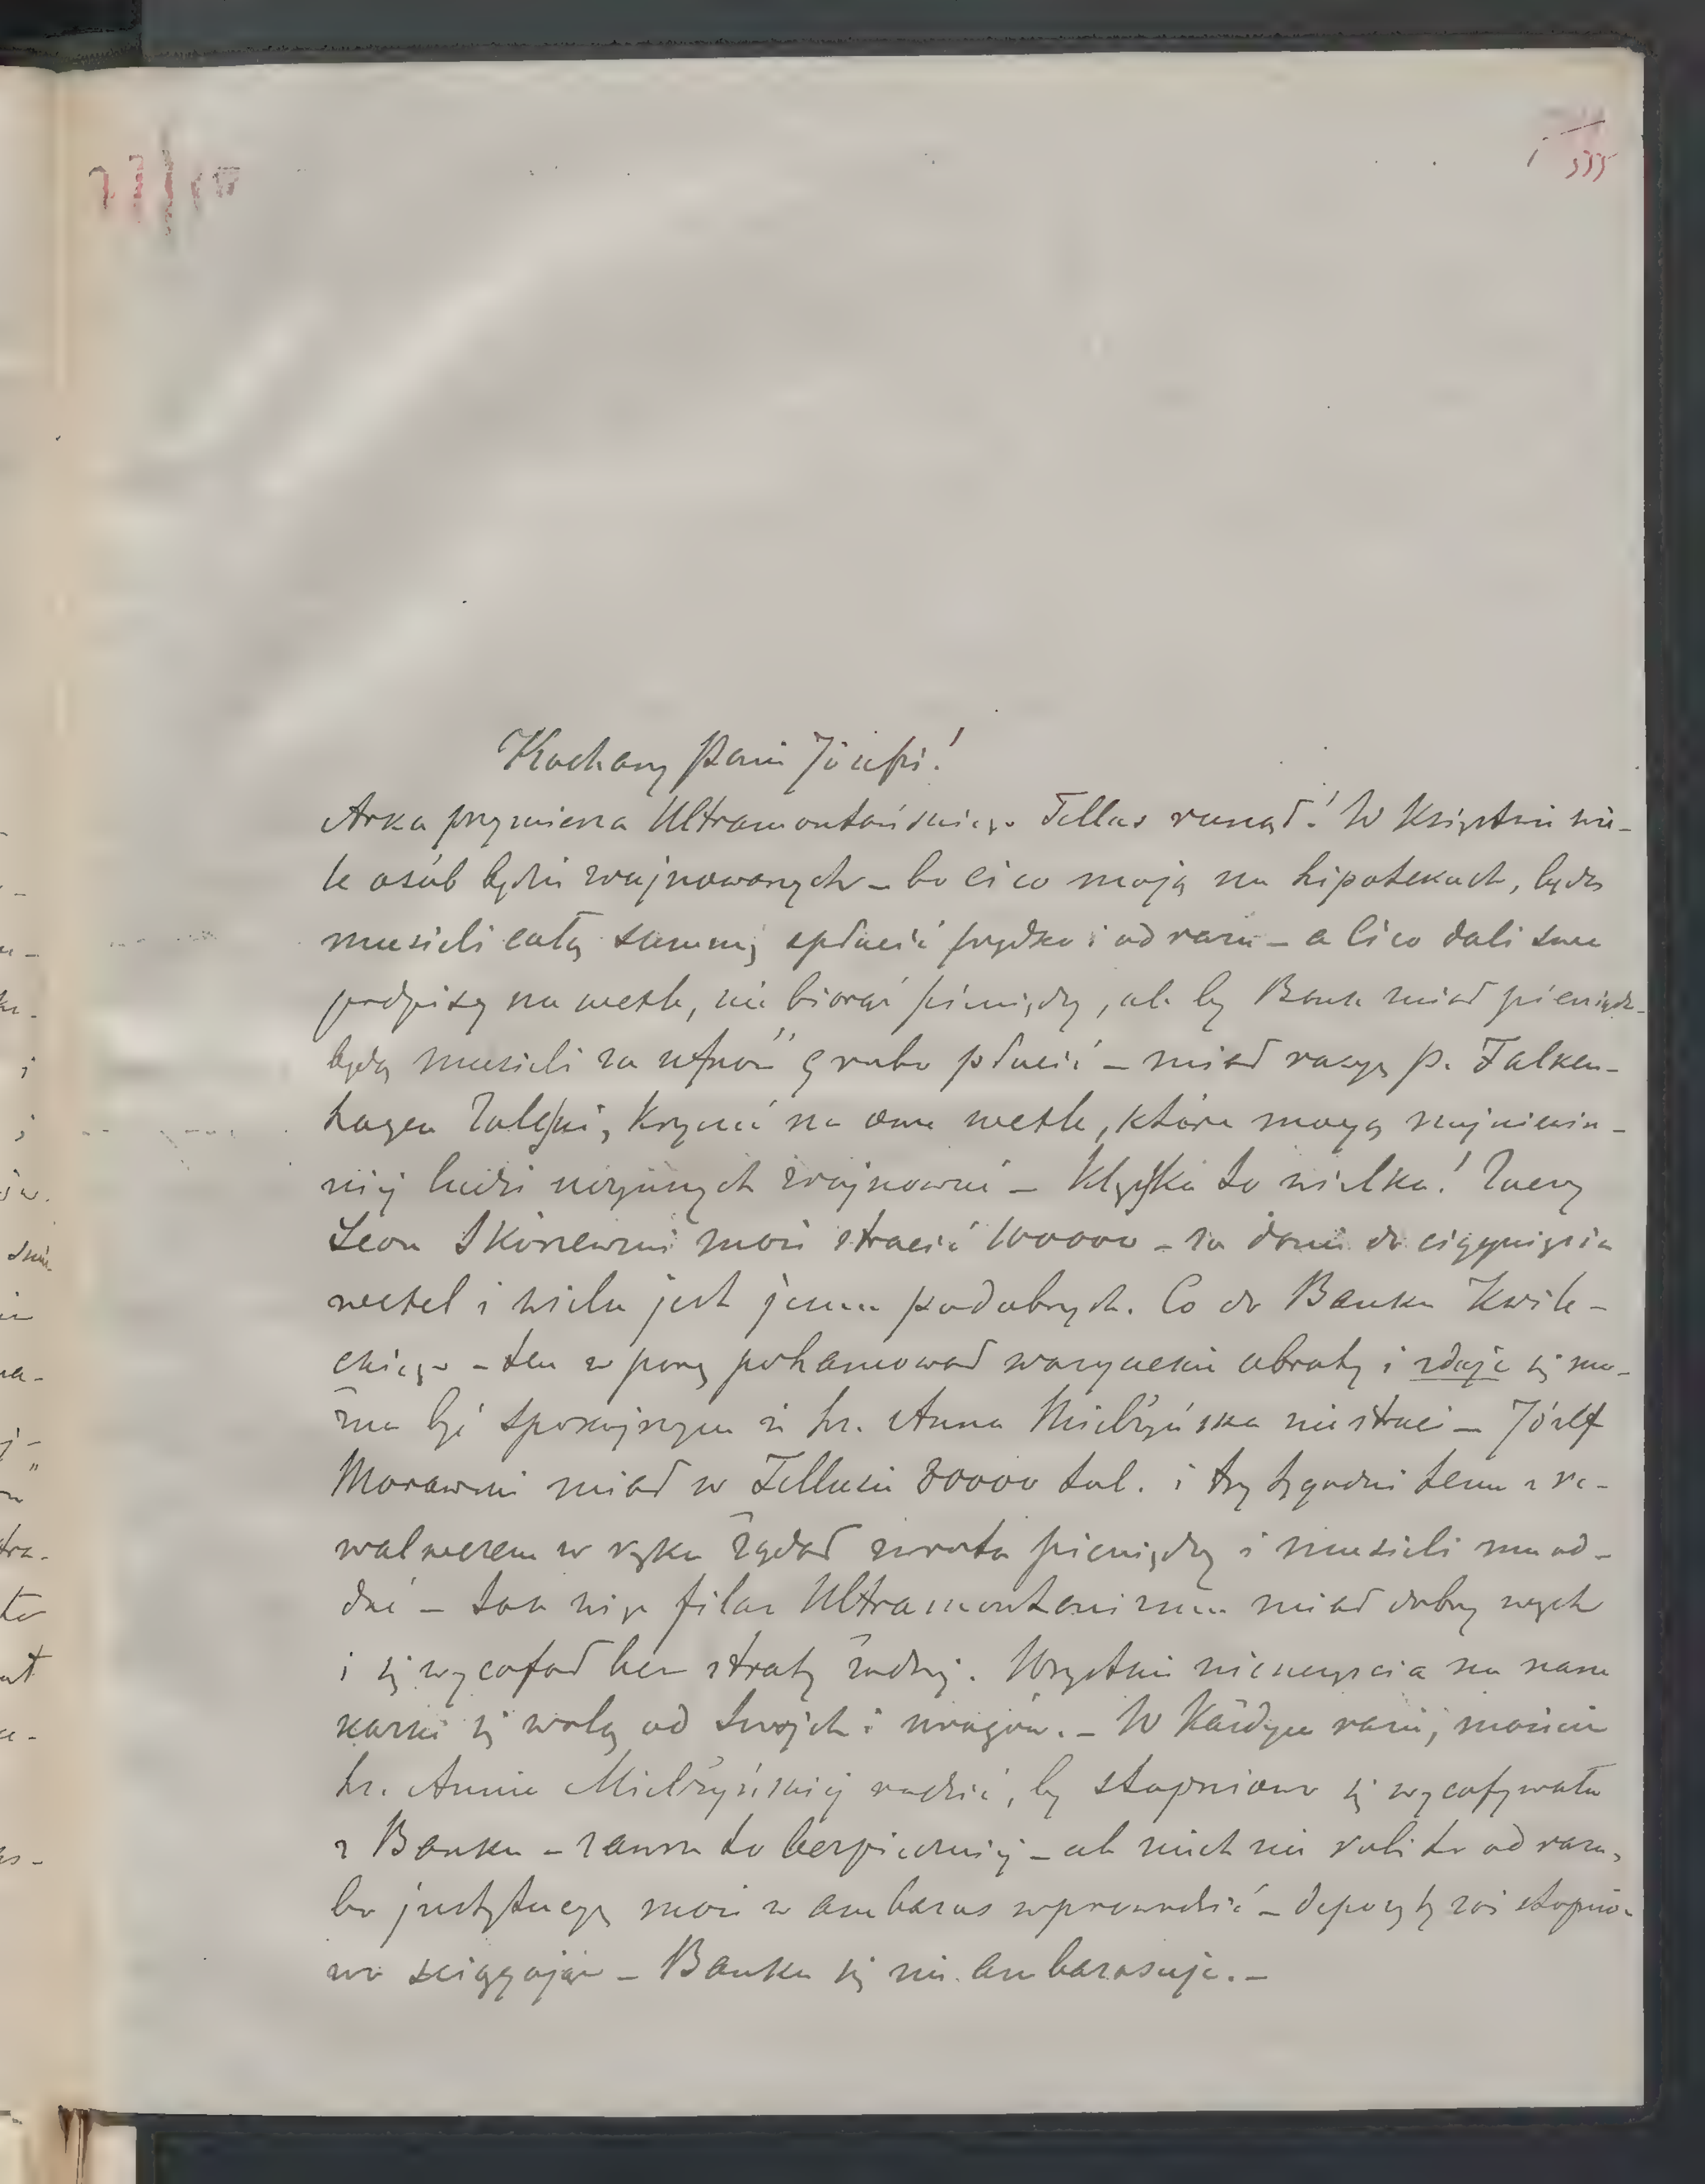 555
Kochany Panie Józefie!
Arka przymierza Ultramontańskiego Tellus runął! W Księstwie wie-
le osób będzie zrujnowanych – bo ci co mają na hipotekach, będą
musieli całą summę spłacić prędko i od razu – a ci co dali swe
podpisy na weksle, nie biorąc pieniędzy, ale by Bank miał pieniądze
będą musieli za ufność grubo płacić – miał racyę p. Falken-
hagen Zaleski, krzycząc na owe weksle, które mogą najniewin-
niej ludzi uczciwych zrujnować – Klęska to wielka! Zacny
Leon Skórzewski może stracić 100000 – za danie do ciągnięcia
weksel i wielu jest jemu podobnych. Co do Banku Kwile-
ckiego – ten w porę pohamował warjackie obroty i zdaje się mo-
żna być spokojnym iż hr. Anna Mielżyńska nie straci – Józef
Morawski miał w Tellusie 80000 tal. i trzy tygodni temu z re-
walwerem w ręku żądał zwrotu pieniędzy i musieli mu od-
dać – tak więc filar Ultramontanizmu miał dobry węch
i się wycofał bez straty żadnej. Wszystkie nieszczęścia na nasze
karki się walą od swojch i wrogów. – W każdym razie, możecie
hr. Annie Mielżyńskiej radzić, by stopniowo się wycofywała
z Banku – zawsze to bezpieczniej – ale niech nie robi to od razu,
bo justytucyę może w ambaras wprowadzić – depozyty zaś stopnio-
wo sciągając – Banku się nie ambarasuje. –